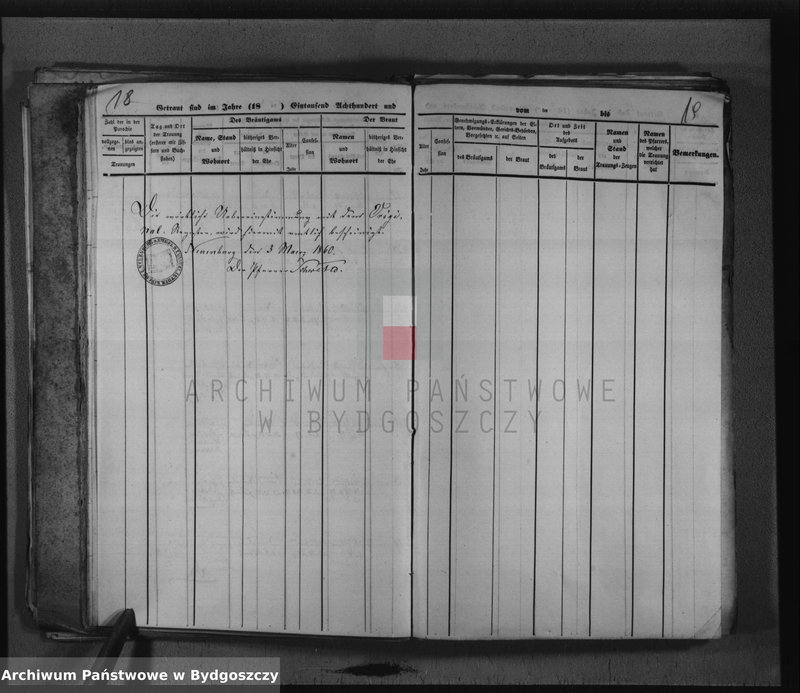 18
Getraut sind im Jahre (18 ) Eintausend Achthundert und
Zahl der in der Parochie
vollzogenen
und angezeigten
Trauungen
Tag und Ort der Trauung (ersterer mit Ziffern und Buchstaben)
Des Bräutigams
Name, Stand und Wohnort
bisheriges Verhältniß in Hinsicht der Ehe
Alter
Jahr
Confession
Der Braut
Namen und Wohnort
bisheriges Verhältniß in Hinsicht der Ehe
vom ten bis
19
Alter
Jahr
Confession
Genehmigungs-Erklärungen der Eltern, Vormünder, Gerichts-Behörden, Vorgesetzten ꝛc. auf Seiten
des Bräutigams
der Braut
Ort und Zeit des Aufgebots
des Bräutigams
der Braut
Namen und Stand der Trauungs-Zeugen
Namen des Pfarrers, welcher die Trauung verrichtet hat
Bemerkungen.
Die wirkliche Uebereinstimmung mit dem Origi-
nal-Register wird hiermit amtlich bescheinigt.
den 3 Maerz 1860.
Der Pfarrer
ARCHIWUM PAŃSTWOWE
W BYDGOSZCZY
Archiwum Państwowe w Bydgoszczy